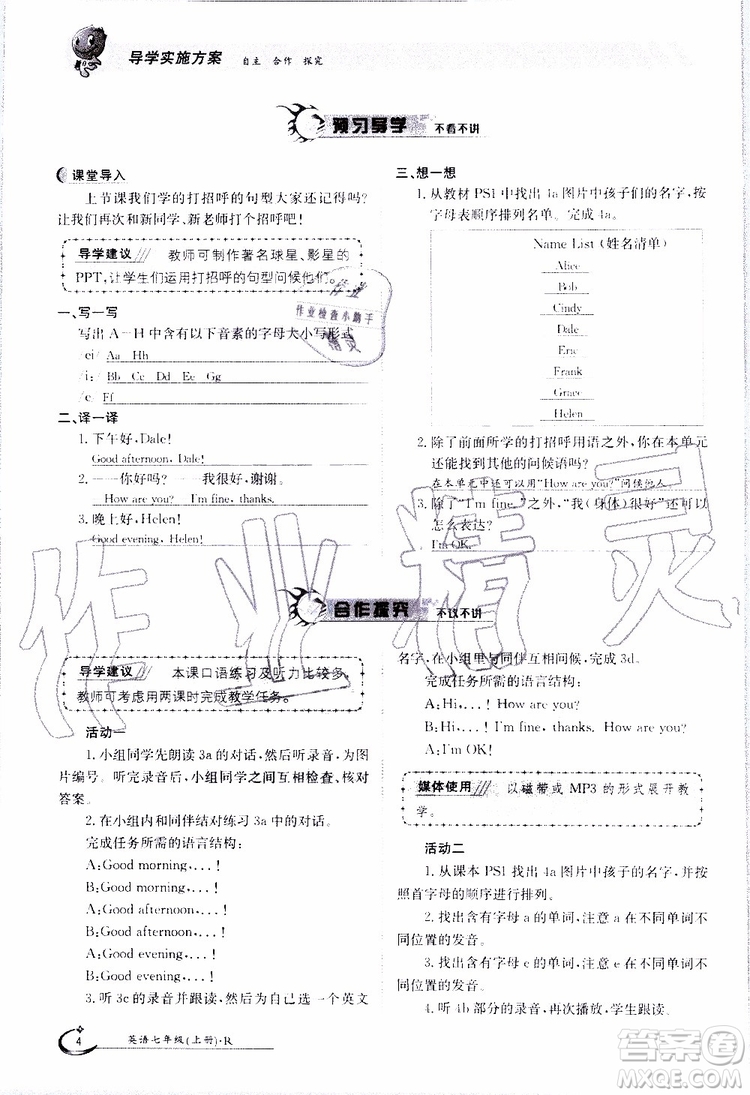 导学实施方案 自主 合作 探究
预习导学 不看不讲
课堂导入
上节课我们学的打招呼的句型大家还记得吗？
让我们再次和新同学、新老师打个招呼吧！
导学建议 教师可制作著名球星、影星的
PPT，让学生们运用打招呼的句型问候他们。
一、写一写
写出 A－H 中含有以下音素的字母大小写形式
/ei/ Aa Hh
/i:/ Bb Cc Dd Ee Gg
/e/ Ff
二、译一译
1. 下午好，Dale！
Good afternoon, Dale!
2. ——你好吗？ ——我很好，谢谢。
How are you? I'm fine, thanks.
3. 晚上好，Helen！
Good evening, Helen!
三、想一想
1. 从教材 PS1 中找出 4a 图片中孩子们的名字，按
字母表顺序排列名单。完成 4a。
Name List（姓名清单）
Alice
Bob
Cindy
Dale
Eric
Frank
Grace
Helen
2. 除了前面所学的打招呼用语之外，你在本单元
还能找到其他的问候语吗？
在本单元中还可以用“How are you?”问候他人。
3. 除了“I'm fine.”之外，“我（身体）很好”还可以
怎么表达？
I'm OK.
合作探究 不议不讲
导学建议 本课口语练习及听力比较多，
教师可考虑用两课时完成教学任务。
活动一
1. 小组同学先朗读 3a 的对话，然后听录音，为图
片编号。听完录音后，小组同学之间互相检查、核对
答案。
2. 在小组内和同伴结对练习 3a 中的对话。
完成任务所需的语言结构：
A：Good morning, ...！
B：Good morning, ...！
A：Good afternoon, ...！
B：Good afternoon, ...！
A：Good evening, ...！
B：Good evening, ...！
3. 听 3c 的录音并跟读，给自己选一个英文
名字，在小组里与同伴互相问候，完成 3d。
完成任务所需的语言结构：
A：Hi, ...！ How are you?
B：Hi, ...！ I'm fine, thanks. How are you?
A：I'm OK!
媒体使用 以磁带或 MP3 的形式展开教
学。
活动二
1. 从课本 PS1 找出 4a 图片中孩子的名字，并按
照首字母的顺序进行排列。
2. 找出含有字母 a 的单词，注意 a 在不同单词不
同位置的发音。
3. 找出含有字母 e 的单词，注意 e 在不同单词不
同位置的发音。
4. 听 4b 部分的录音，再次播放，学生跟读。
4 英语七年级（上册）·R
作业
作业检查小助手
精灵
作业精灵
答案圈
MXQE.COM